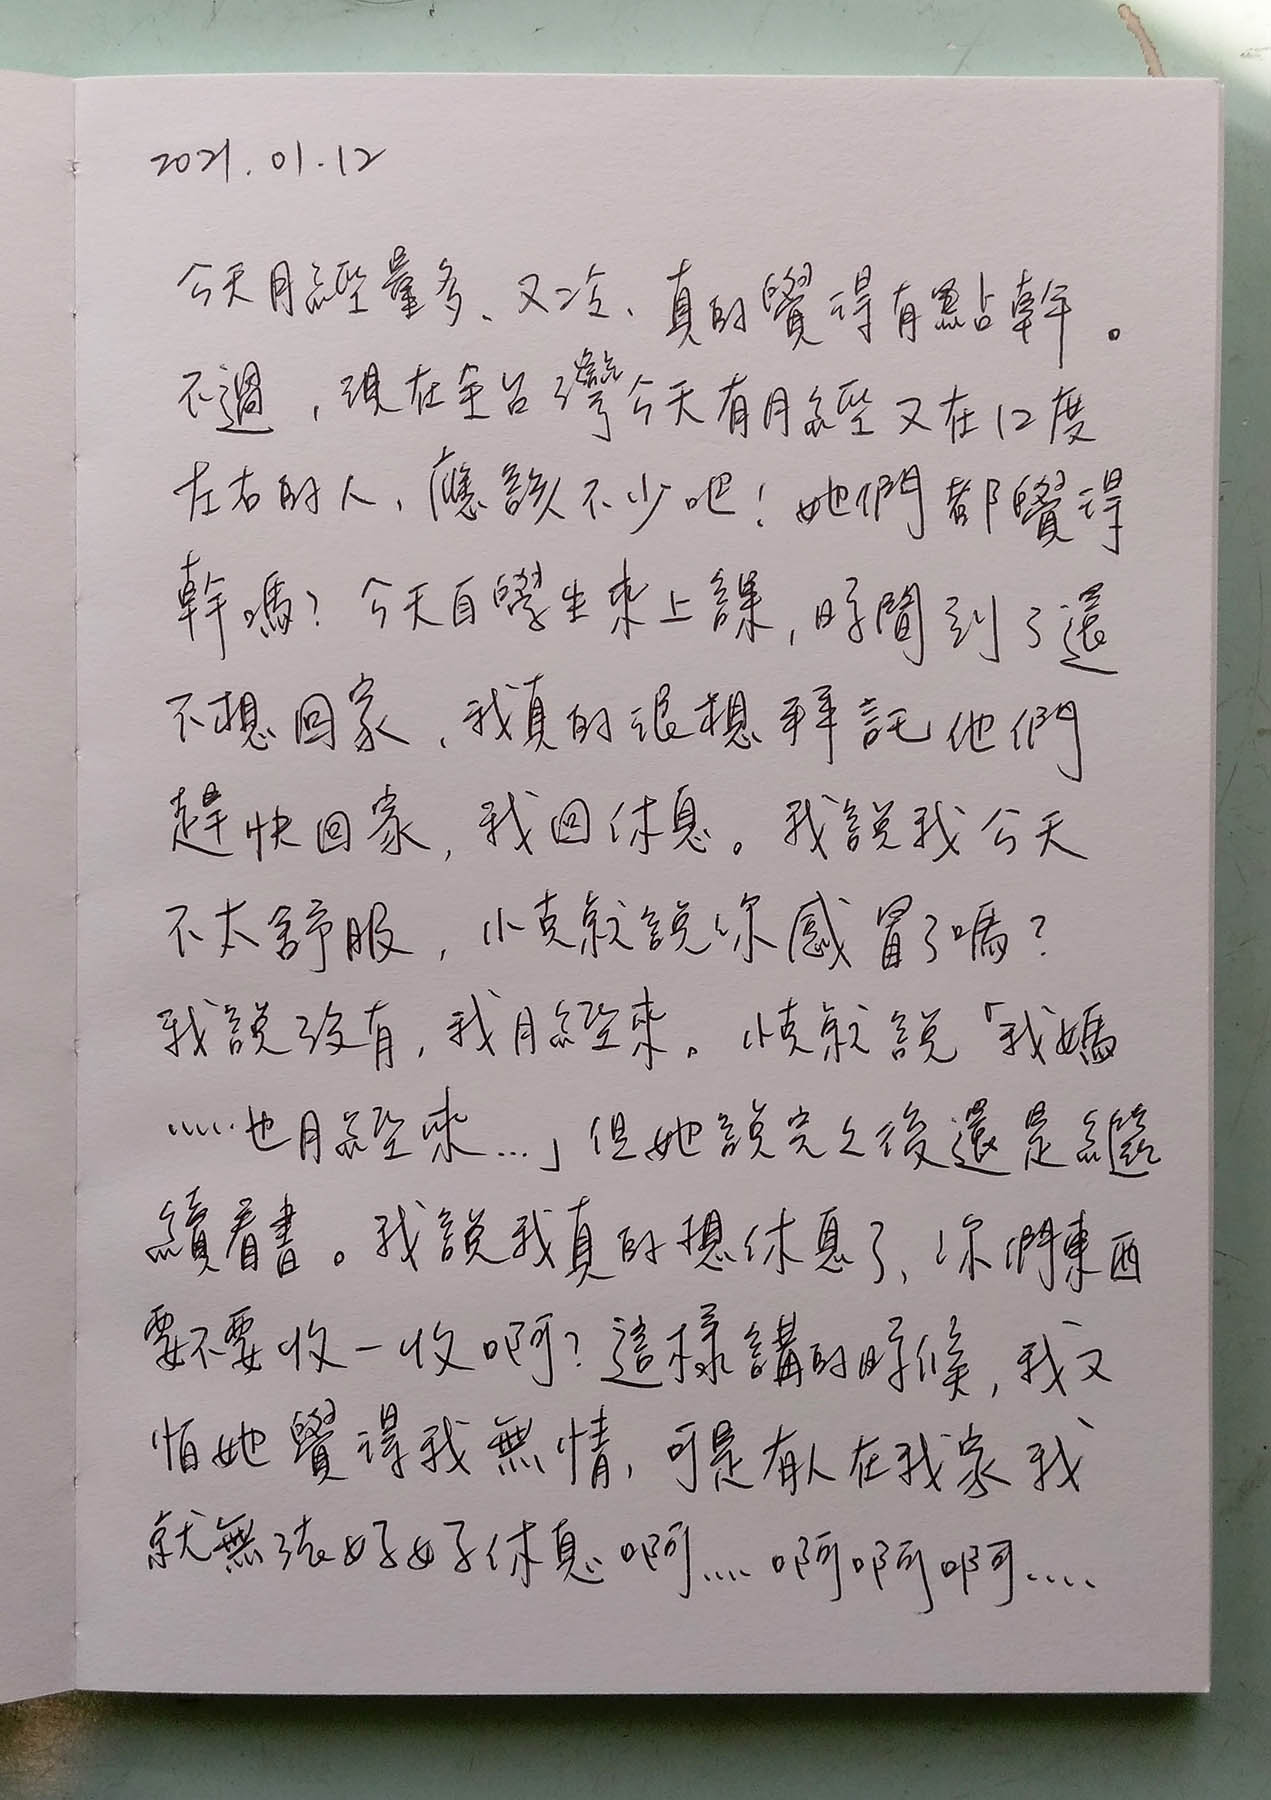 2021.01.12
今天月經量多、又冷、真的覺得有點幹。
不過，現在全台灣今天有月經又在12度
左右的人，應該不少吧！她們都覺得
幹嗎？今天自學生來上課，時間到了還
不想回家，我真的很想拜託他們
趕快回家，我回休息。我說我今天
不太舒服，小克就說你感冒了嗎？
我說沒有，我月經來。小克就說「我媽
……也月經來...」但她說完之後還是繼
續看書。我說我真的想休息了，你們東西
要不要收一收啊？這樣講的時候，我又
怕她覺得我無情，可是有人在我家我
就無法好好休息啊.... 啊啊啊....